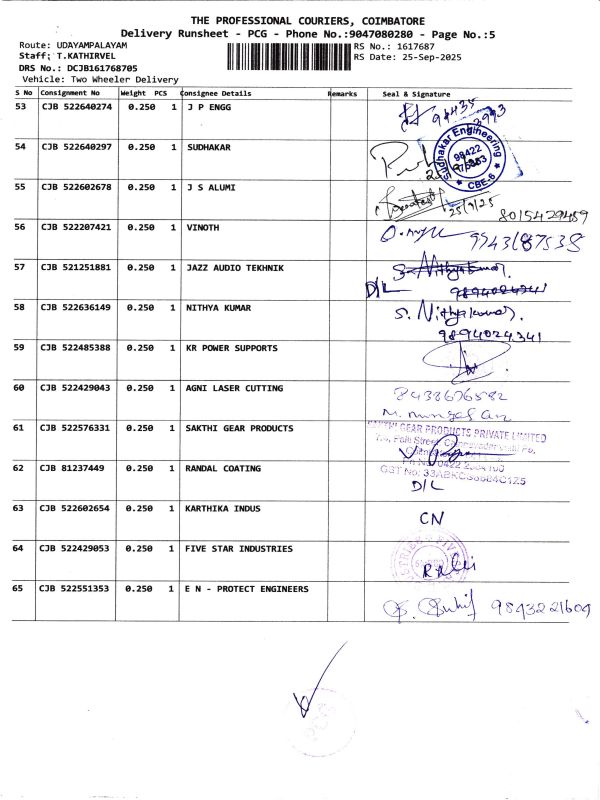 THE PROFESSIONAL COURIERS, COIMBATORE
Delivery Runsheet - PCG - Phone No.:9047080280 - Page No.:5
Route: UDAYAMPALAYAM
Staff: T.KATHIRVEL
DRS No.: DCJB161768705
Vehicle: Two Wheeler Delivery
RS No.: 1617687
RS Date: 25-Sep-2025
S No Consignment No Weight PCS Consignee Details Remarks Seal & Signature
53 CJB 522640274 0.250 1 J P ENGG
54 CJB 522640297 0.250 1 SUDHAKAR
Sudhakar Engineering
98422
CBE-6
55 CJB 522602678 0.250 1 J S ALUMI
25/9/25
8015429459
56 CJB 522207421 0.250 1 VINOTH
9943187538
57 CJB 521251881 0.250 1 JAZZ AUDIO TEKHNIK
S. Nithya Kumar.
D/L 9894024341
58 CJB 522636149 0.250 1 NITHYA KUMAR
S. Nithya kumar.
9894024341
59 CJB 522485388 0.250 1 KR POWER SUPPORTS
60 CJB 522429043 0.250 1 AGNI LASER CUTTING
8438676582
61 CJB 522576331 0.250 1 SAKTHI GEAR PRODUCTS
GEAR PRODUCTS PRIVATE LIMITED
62 CJB 81237449 0.250 1 RANDAL COATING
GST No:
D/L
63 CJB 522602654 0.250 1 KARTHIKA INDUS
CN
64 CJB 522429053 0.250 1 FIVE STAR INDUSTRIES
65 CJB 522551353 0.250 1 E N - PROTECT ENGINEERS
9843221604
PCG